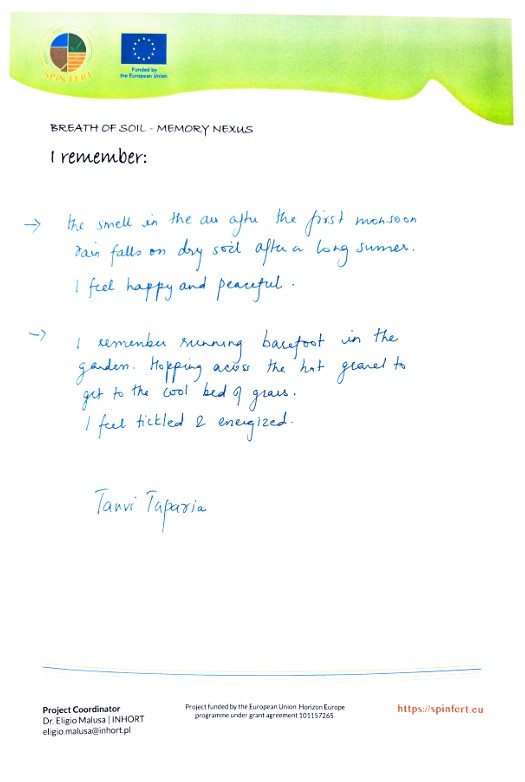 SPIN FERT
Funded by
the European Union
BREATH OF SOIL - MEMORY NEXUS
I remember:
→ the smell in the air after the first monsoon
rain falls on dry soil after a long summer.
I feel happy and peaceful.
→ I remember running barefoot in the
garden. Hopping across the hot gravel to
get to the cool bed of grass.
I feel tickled & energized.
Tanvi Taparia
Project Coordinator
Dr. Eligio Malusa | INHORT
eligio.malusa@inhort.pl
Project funded by the European Union Horizon Europe
programme under grant agreement 101157265.
https://spinfert.eu